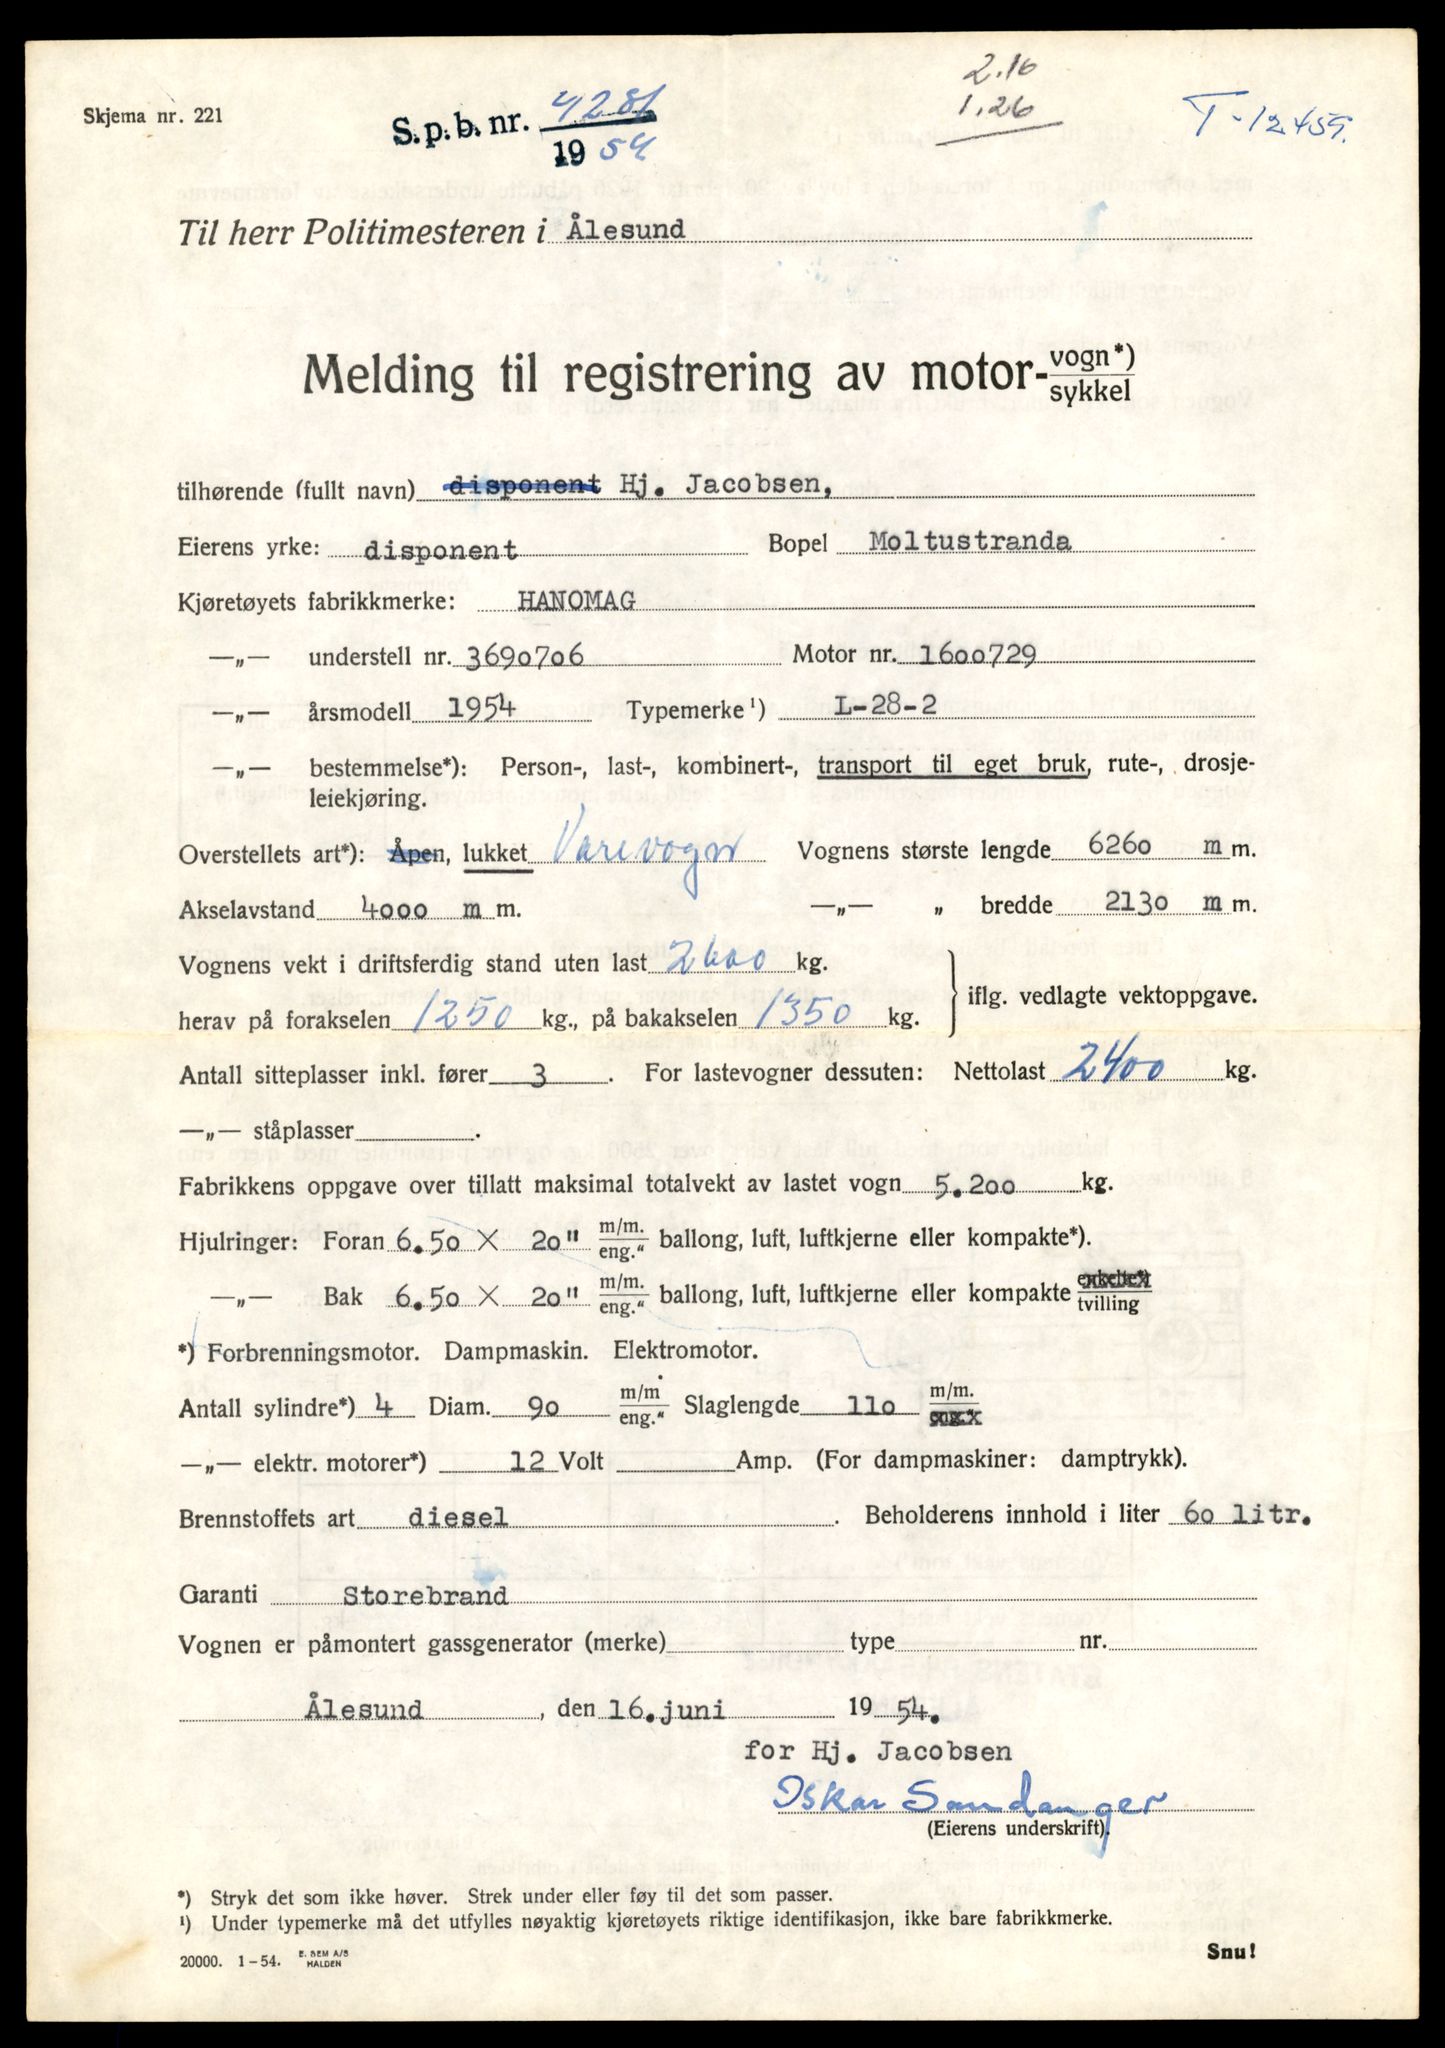 Skjema nr. 221
S.p.b. nr. 4281
1954
2.16
1.26
T-12455.
Til herr Politimesteren i Ålesund
Melding til registrering av motor-vogn*)
sykkel
tilhørende (fullt navn) disponent Hj. Jacobsen,
Eierens yrke: disponent Bopel Moltustranda
Kjøretøyets fabrikkmerke: HANOMAG
—„— understell nr. 3690706 Motor nr. 1600729
—„— årsmodell 1954 Typemerke¹) L-28-2
—„— bestemmelse*): Person-, last-, kombinert-, transport til eget bruk, rute-, drosje-
leiekjøring.
Overstellets art*): Åpen, lukket Varevogn Vognens største lengde 6260 m m.
Akselavstand 4000 m m. —„— „ bredde 2130 m m.
Vognens vekt i driftsferdig stand uten last 2600 kg.
herav på forakselen 1250 kg., på bakakselen 1350 kg. iflg. vedlagte vektoppgave.
Antall sitteplasser inkl. fører 3. For lastevogner dessuten: Nettolast 2400 kg.
—„— ståplasser .
Fabrikkens oppgave over tillatt maksimal totalvekt av lastet vogn 5.200 kg.
Hjulringer: Foran 6.50 X 20" m/m. eng." ballong, luft, luftkjerne eller kompakte*).
—„— Bak 6.50 X 20" m/m. eng." ballong, luft, luftkjerne eller kompakte enkelte*) tvilling
*) Forbrenningsmotor. Dampmaskin. Elektromotor.
Antall sylindre*) 4 Diam. 90 m/m eng." Slaglengde 110 m/m. eng."
—„— elektr. motorer*) 12 Volt Amp. (For dampmaskiner: damptrykk).
Brennstoffets art diesel . Beholderens innhold i liter 60 litr.
Garanti Storebrand
Vognen er påmontert gassgenerator (merke) type nr.
Ålesund , den 16. juni 1954.
for Hj. Jacobsen
Oskar Sandanger
(Eierens underskrift).
*) Stryk det som ikke høver. Strek under eller føy til det som passer.
¹) Under typemerke må det utfylles nøyaktig kjøretøyets riktige identifikasjon, ikke bare fabrikkmerke.
20000. 1-54. E. SEM A/S
HALDEN
Snu!